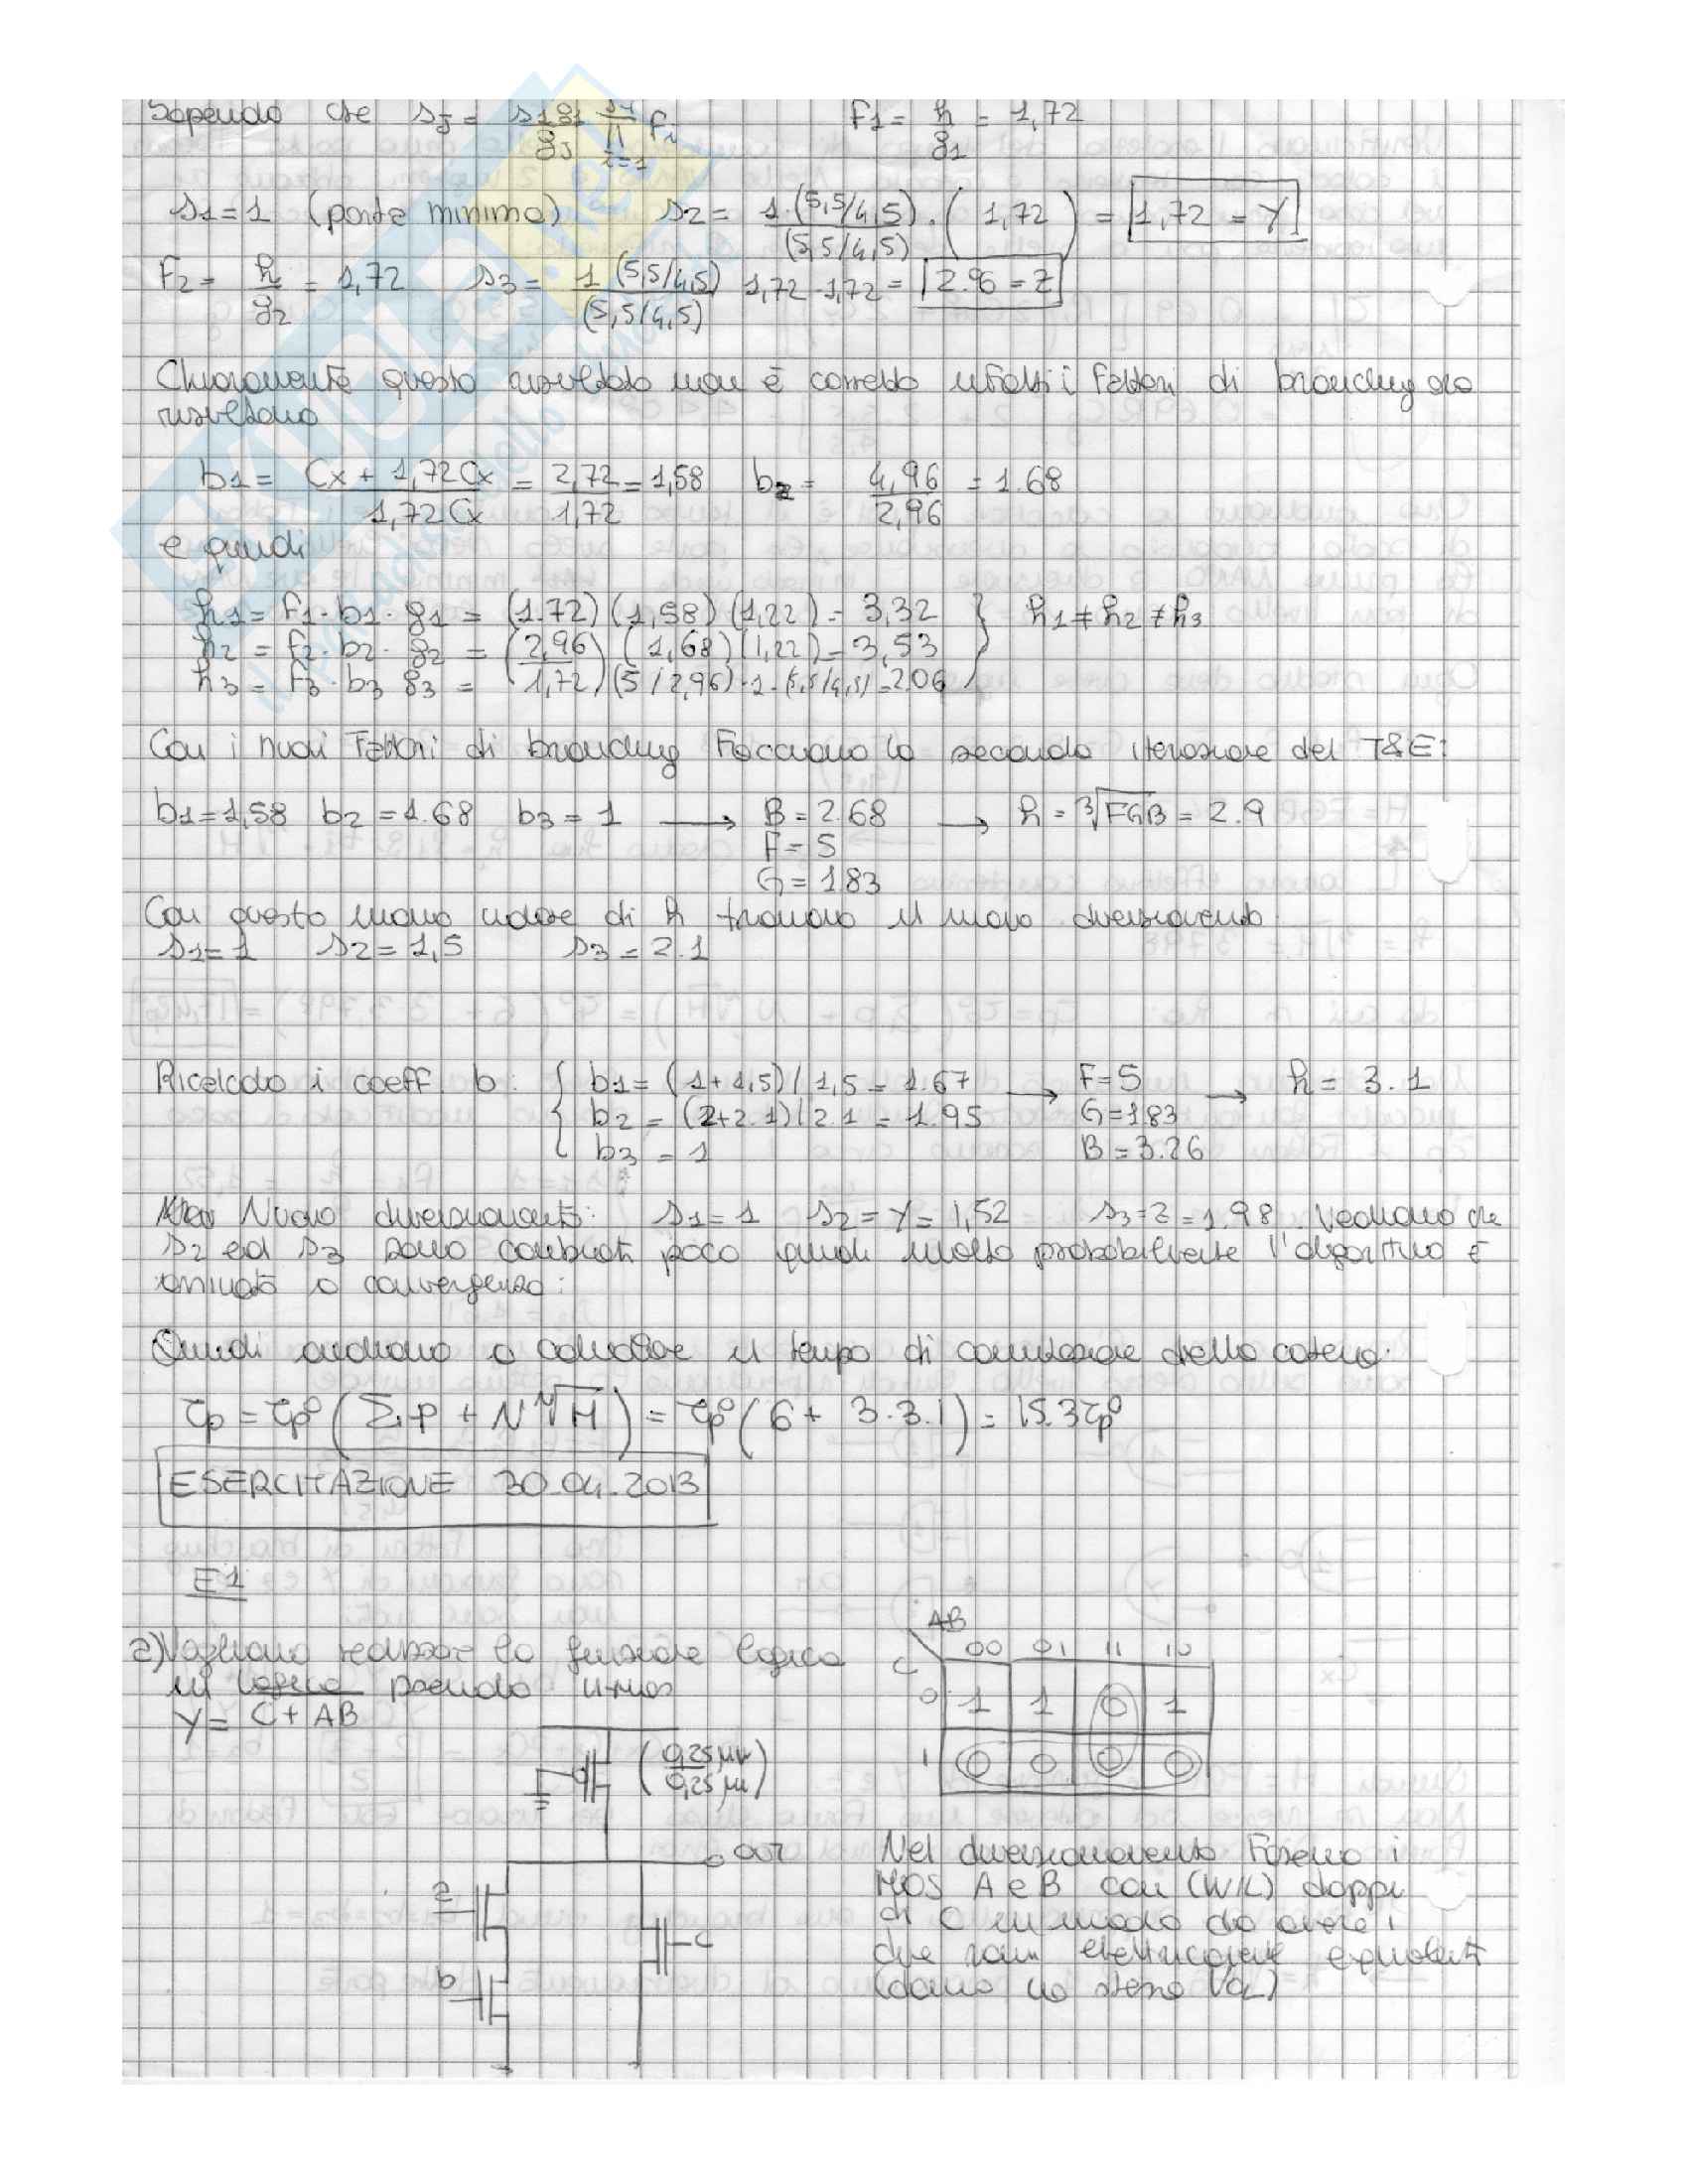 Sapendo che s_j = s1g1/gj ∏ i=1 fi   f1 = h/g1 = 1,72
s1=1 (porta minima)   s2 = 1·(5,5/4,5)/(5,5/4,5) · (1,72) = 1,72 = Y
f2 = h/g2 = 1,72   s3 = 1 (5,5/4,5)/(5,5/4,5) 1,72·1,72 = 2.96 = Z
Chiaramente questo risultato non è corretto infatti i fattori di branching ora
risultano
b1 = Cx + 1,72Cx / 1,72Cx = 2,72/1,72 = 1,58   b2 = 4,96/2,96 = 1.68
e quindi
h1 = f1·b1·g1 = (1.72)(1,58)(1,22) = 3,32   h1≠h2≠h3
h2 = f2·b2·g2 = (2,96/1,72)(1,68)(1,22) = 3,53
h3 = f3·b3 g3 = (5/2,96)·1·(5,5/4,5) = 2.06
Con i nuovi fattori di branching facciamo la seconda iterazione del T&E:
b1=1,58   b2=1.68   b3=1 → B=2.68 → h = ³√FGB = 2.9
F=5
G=1.83
Con questo nuovo valore di h troviamo il nuovo dimensionamento
s1=1   s2=1,5   s3=2.1
Ricalcolo i coeff. b: { b1 = (1+1,5)/1,5 = 1.67 → F=5 → h = 3.1
b2 = (2+2.1)/2.1 = 1.95   G=1.83
b3 = 1   B=3.26
Nuovo dimensionamento: s1=1   s2=Y=1,52   s3=Z=1.98. Vediamo che
s2 ed s3 sono cambiati poco quindi molto probabilmente l'algoritmo è
arrivato a convergenza:
Quindi andiamo a calcolare il tempo di commutazione della catena.
τp = τp⁰ (Σp + N ᴺ√H) = τp⁰ (6 + 3·3.1) = 15.3τp⁰
ESERCITAZIONE 30.04.2013
E1
a) Vogliamo realizzare la funzione logica
in logica pseudo nmos
Y = C + AB
AB
C
00 01 11 10
0 1 1 0 1
1 0 0 0 0
(0,25μm/0,25μm)
OUT
a
b
c
Nel dimensionamento faremo i
MOS A e B con (W/L) doppi
di C in modo da avere i
due rami elettricamente equivalenti
(danno lo stesso VOL)